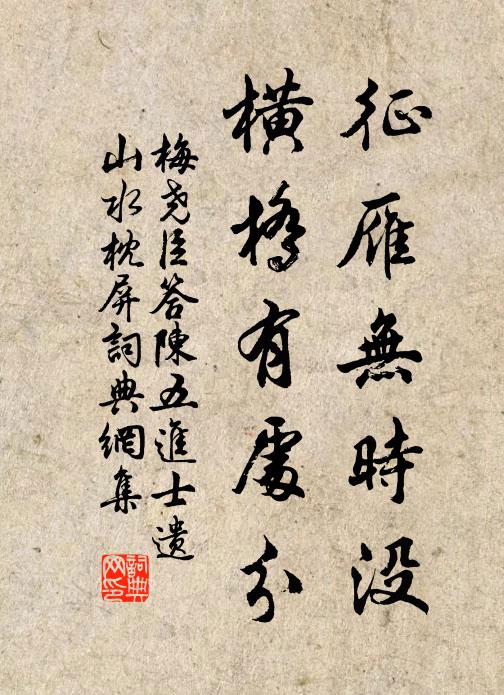 征雁無時没
橫橋有處分
梅堯臣答陳五進士遺
山水枕屏詞典網集
詞典
网印